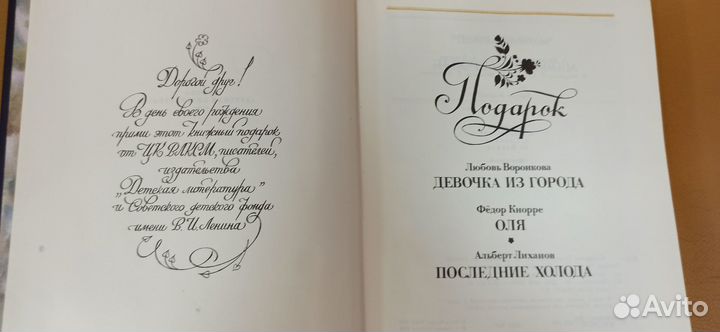 Дорогой друг!
В день своего рождения
прими этот книжный подарок
от ЦК ВЛКСМ, писателей,
издательства
"Детская литература"
и Советского детского фонда
имени В.И. Ленина
Подарок
Любовь Воронкова
ДЕВОЧКА ИЗ ГОРОДА
Фёдор Кнорре
ОЛЯ
Альберт Лиханов
ПОСЛЕДНИЕ ХОЛОДА
Avito